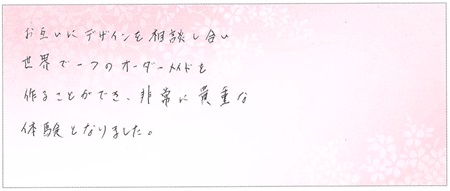 お互いにデザインを相談し合い
世界で一つのオーダーメイドを
作ることができ、非常に貴重な
体験となりました。